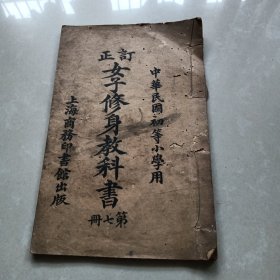 中華民國初等小學用
訂正
女子修身教科書
第七冊
上海商務印書館出版